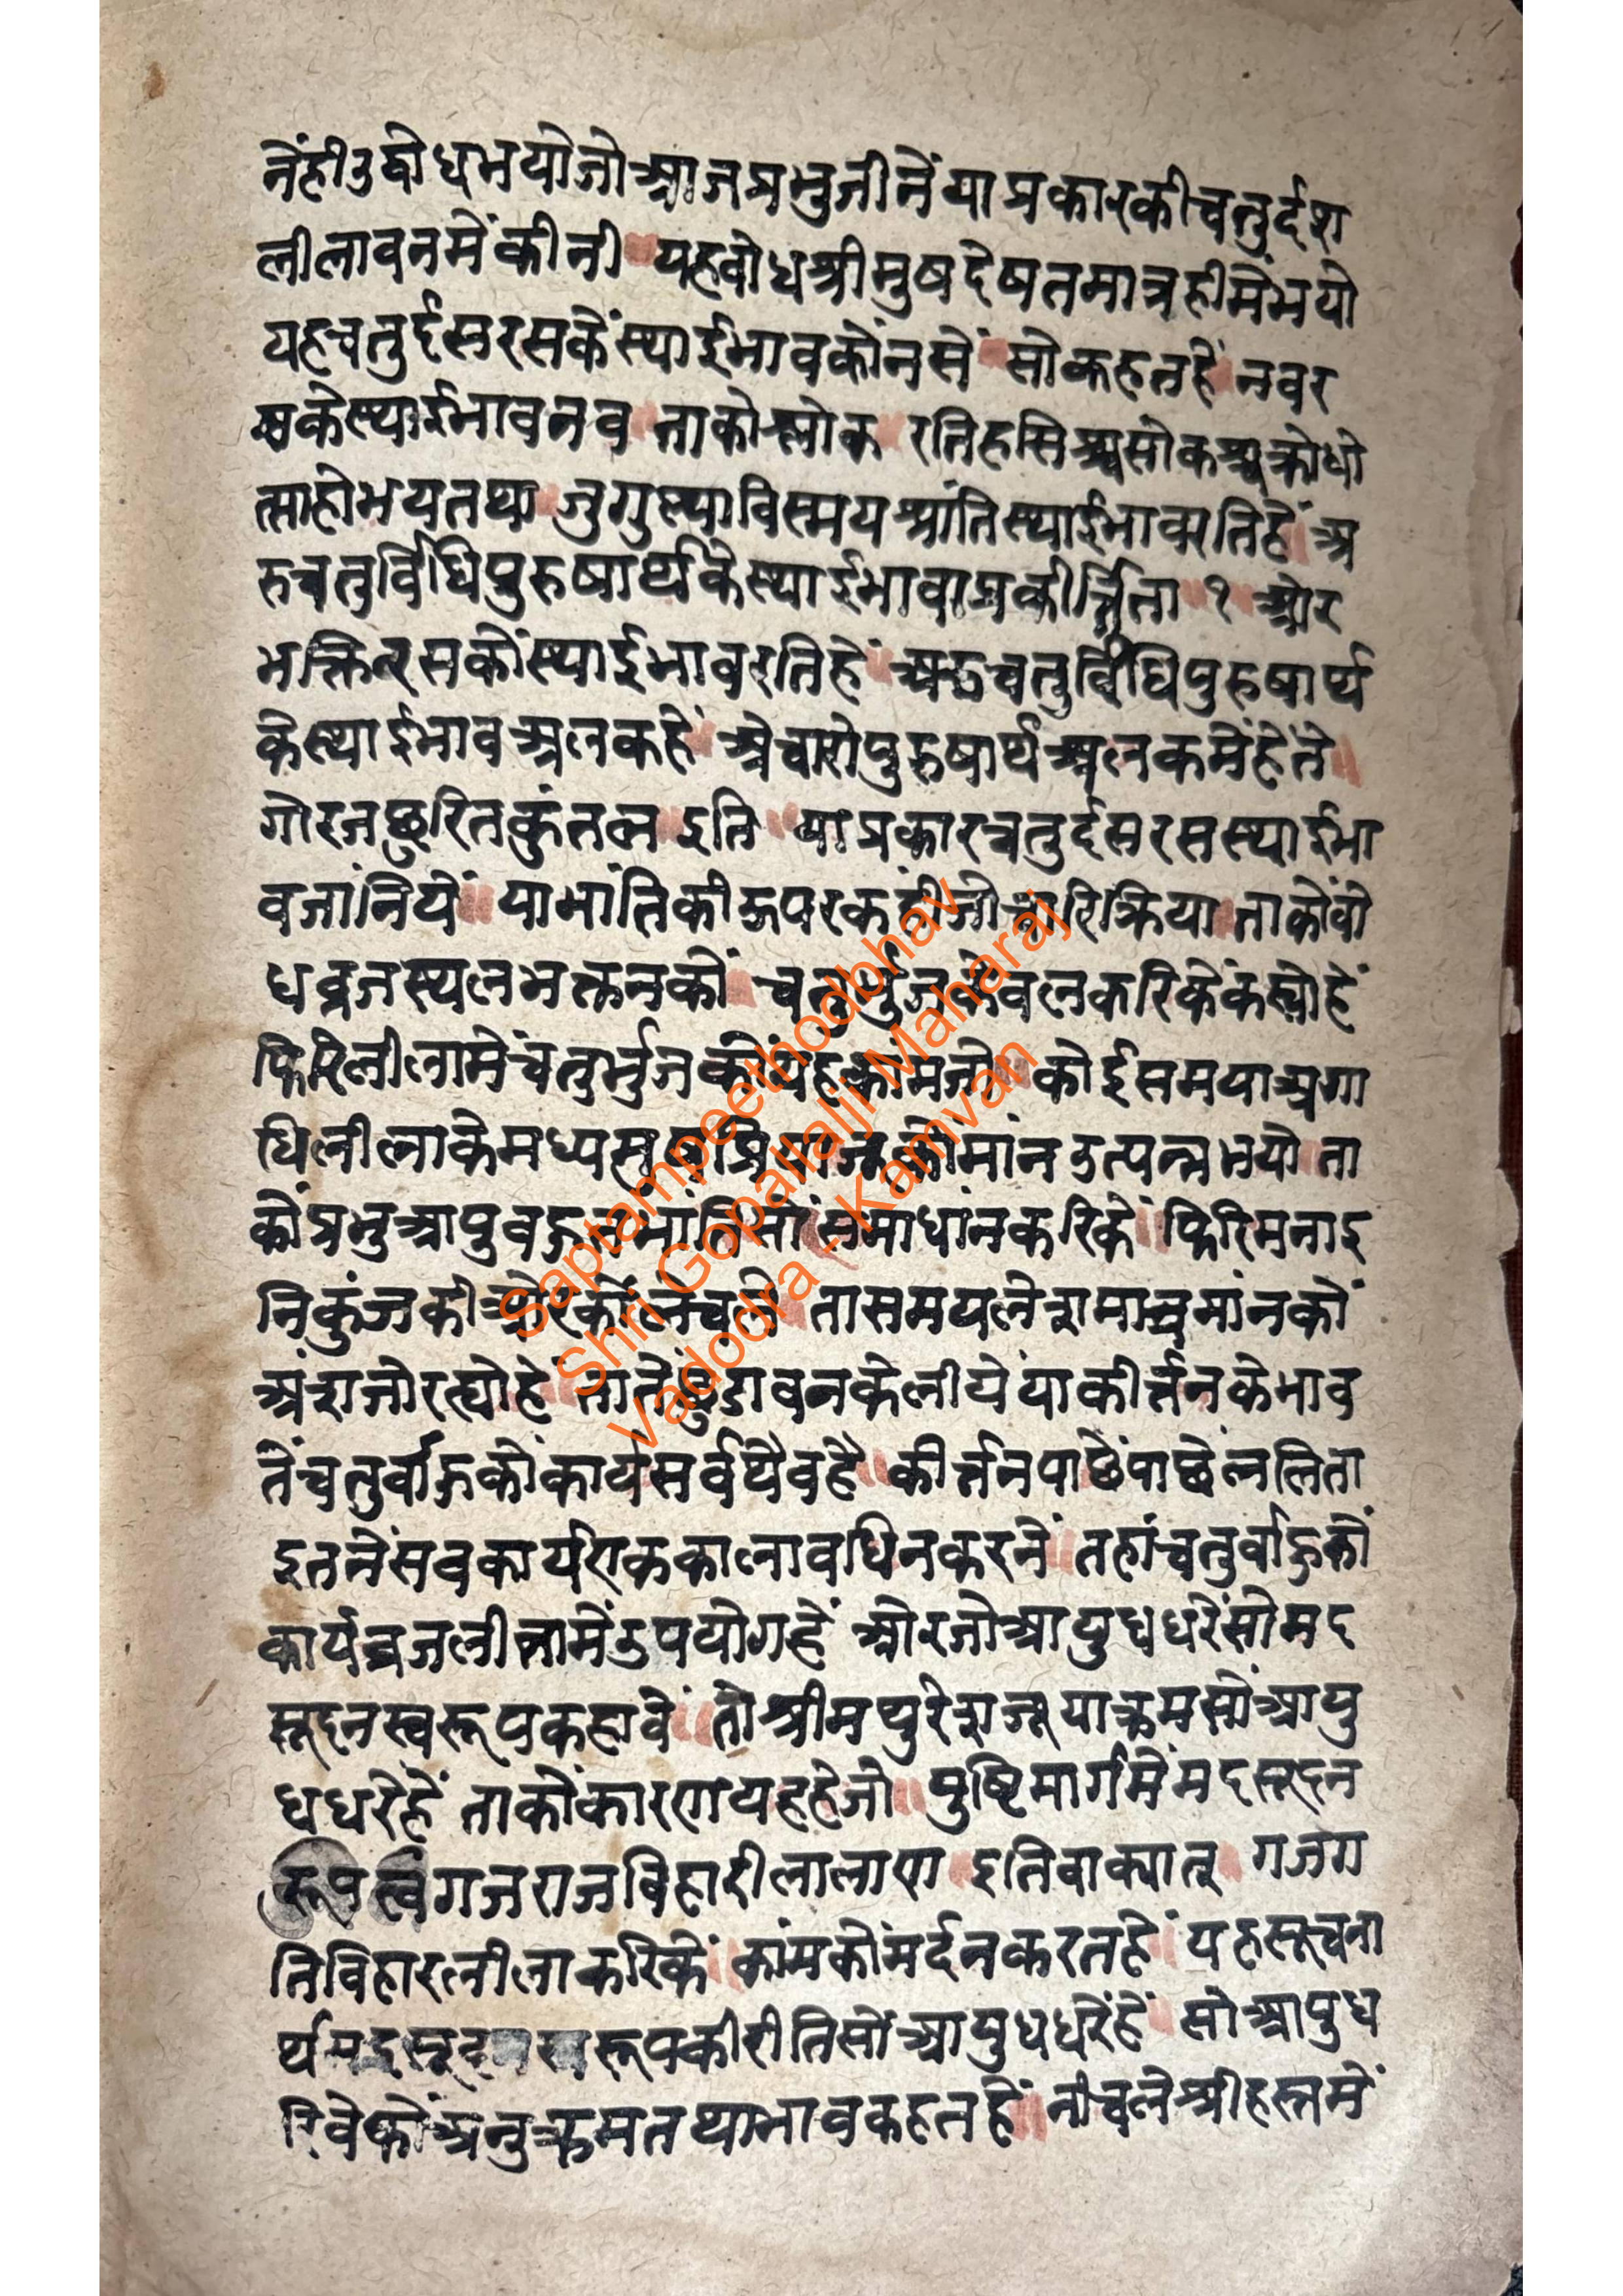 नेंहीउद्बोधभयोजोआजप्रभुजीनेंयाप्रकारकीचतुर्दश
लीलावनमेंकीनी ॥ यहबोधश्रीमुषदेषतमात्रहीमेंभयो
यहचतुर्दसरसकेंस्थाईभावकोंनसें ॥ सोकहतहें ॥ नवर
सकेस्थाईभावनव ॥ ताकोश्लोक ॥ रतिहसिश्चसोकश्चक्रोधो
त्साहोभयतथा ॥ जुगुप्स्याविस्मयश्शांतिस्थाईभाव्यतिहें ॥ अ
रुचतुर्विधिपुरुषार्थकेस्थाईभावाप्रकीर्त्तिता ॥ १ ॥ ओर
भक्तिरसकोंस्थाईभावरतिहें ॥ अरुचतुर्विधिपुरुषार्थ
केस्थाईभावअलकहें ॥ अेचारोपुरुषार्थअलकमेंहेंते ॥
गोरजछुरितकुंतल ॥ इति ॥ याप्रकारचतुर्दसरसस्थाईभा
वजांनियें ॥ याभांतिकीऊपरकहीजोचारिक्रिया ॥ ताकोंबो
धव्रजस्थलभक्तनकों ॥ चतुर्भुजकेवलकरिकेंकह्योहें
फिरिलीलामेंचतुर्भुजकोंयहकांमजो ॥ कोईसमयाअगा
धिलीलाकेमध्य कोंमांनउत्पन्नभयो ॥ ता
कोंप्रभुआपुबहुतभांतिसोंसमाधांनकरिकें ॥ फिरिमनाइ
निकुंजकीओरकोंलेचले ॥ तासमयलेशमात्रमांनकों
अंशजोरह्योहें ॥ तातेंछुडावनकेलीयेंयाकीर्त्तनकेभाव
तेंचतुर्बाहुकोंकार्यसर्वथैवहै ॥ कीर्त्तनपाछेंपाछेंललिता
इतनेंसबकार्यएककालावधिनकरनें ॥ तहांचतुर्बाहुकों
कार्यव्रजलीलामेंउपयोगहें ॥ ओरजोआयुधधरेंसोमद
सूदनस्वरूपकहावे ॥ तोश्रीमथुरेशजूयाक्रमसोंआयु
धधरेहें ॥ ताकोंकारणयहहेजो ॥ पुष्टिमार्गमेंमदसूदन
रूपत्वगजराजविहारीलालाए ॥ इतिवाक्यात् ॥ गजग
तिविहारलीलाकरिकें ॥ कांमकोंमर्दनकरतहें ॥ यहसूचना
र्थमदसूदन रूपकीरीतिसोंआयुधधरेंहें ॥ सोआयुध
रिवेकोंअनुक्रमतथाभावकहतहें ॥ नीचलेश्रीहस्तमें
Saptampeethodbhav
Shri Gopallalji Maharaj
Vadodra - Kamvan